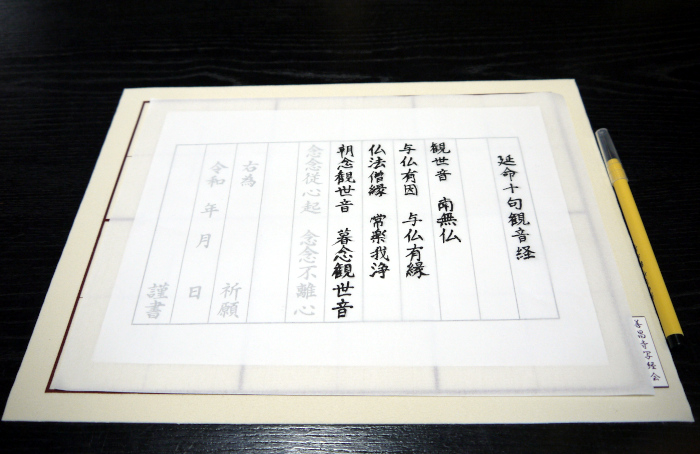 延命十句観音経
観世音 南無仏
与仏有因 与仏有縁
仏法僧縁 常楽我浄
朝念観世音 暮念観世音
念念従心起 念念不離心
右為 祈願
令和 年 月 日
謹書
善思寺写経会